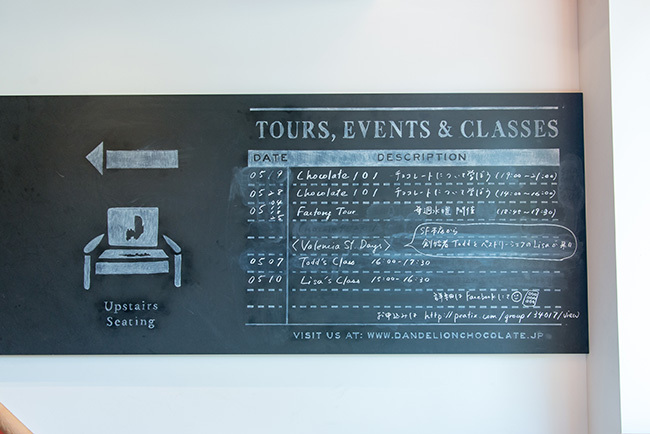 TOURS, EVENTS & CLASSES
DATE DESCRIPTION
05/9 Chocolate 101 チョコレートについて学ぼう (19:00~21:00)
0528 Chocolate 101 チョコレートについて学ぼう (14:00~16:00)
05 Factory Tour 毎週水曜 開催
SF本店から
<Valencia St. Days> 創始者 Toddと ペストリーシェフのLisaが来日
0507 Todd's Class 16:00-17:30
0510 Lisa's Class 15:00-16:30
詳細は Facebookにて
お申込みは http://peatix.com/group/34017/view
VISIT US AT: WWW.DANDELIONCHOCOLATE.JP
Upstairs
Seating